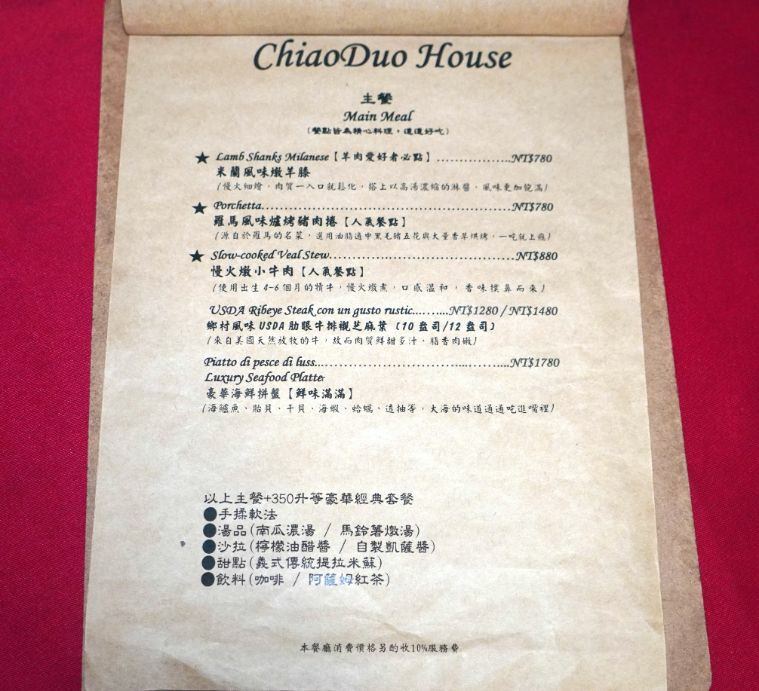 ChiaoDuo House
主餐
Main Meal
(餐點皆為精心料理，道道好吃)
★ Lamb Shanks Milanese【羊肉愛好者必點】................NT$780
米蘭風味燉羊膝
(慢火細燴，肉質一入口就鬆化，搭上以高湯濃縮的淋醬，風味更加飽滿)
★ Porchetta................................................................NT$780
羅馬風味爐烤豬肉捲【人氣餐點】
(源自於羅馬的名菜，選用油脂適中黑毛豬五花與大量香草烘烤，一吃就上癮)
★ Slow-cooked Veal Stew................................................NT$880
慢火燉小牛肉【人氣餐點】
(使用出生4-6個月的犢牛，慢火燉煮，口感溫和，香味撲鼻而來)
USDA Ribeye Steak con un gusto rustic.........NT$1280 / NT$1480
鄉村風味USDA肋眼牛排襯芝麻葉 (10盎司/12盎司)
(來自美國天然放牧的牛，故而肉質鮮甜多汁、脂香肉嫩)
Piatto di pesce di luss................................................NT$1780
Luxury Seafood Platte
豪華海鮮拼盤【鮮味滿滿】
(海鱸魚、貽貝、干貝、海蝦、蛤蠣、透抽等，大海的味道通通吃進嘴裡)
以上主餐+350升等豪華經典套餐
●手揉軟法
●湯品(南瓜濃湯 / 馬鈴薯燉湯)
●沙拉(檸檬油醋醬 / 自製凱薩醬)
●甜點(義式傳統提拉米蘇)
●飲料(咖啡 / 阿薩姆紅茶)
本餐廳消費價格另酌收10%服務費